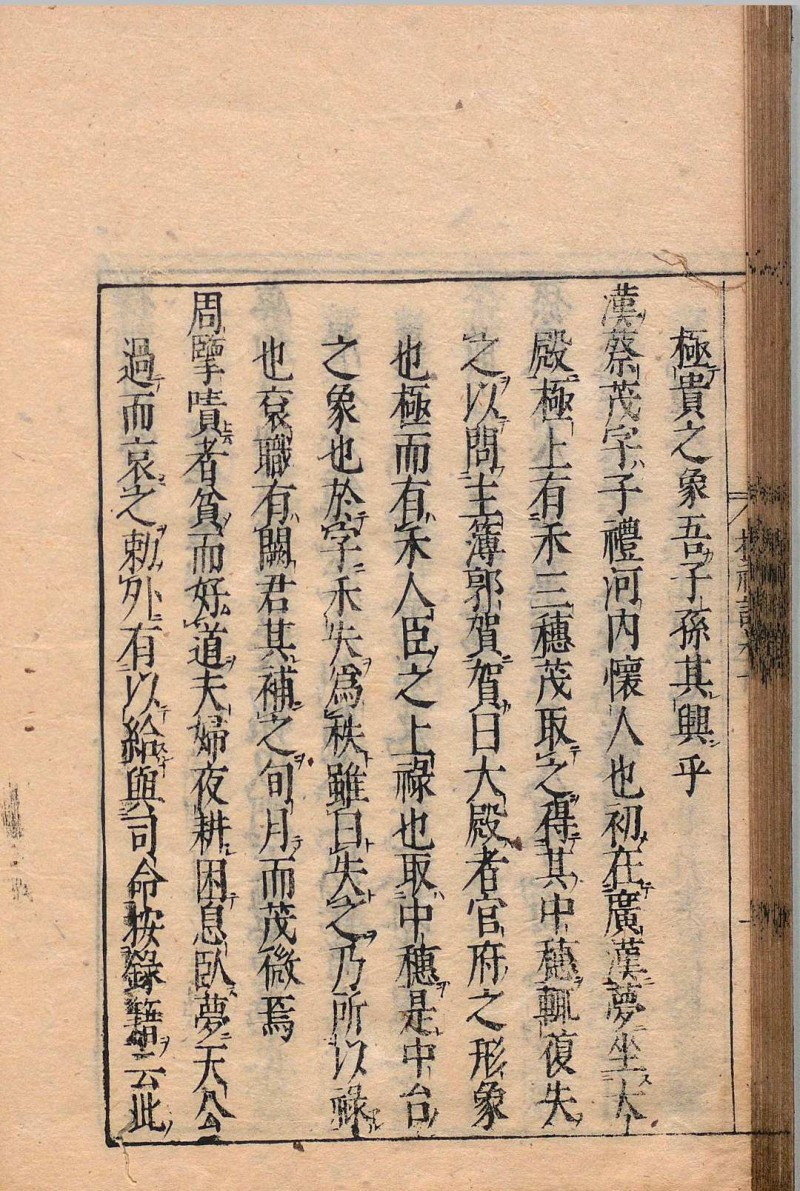 極貴之象吾子孫其興乎
漢蔡茂字子禮河內懷人也初在廣漢夢坐大
殿極上有禾三穗茂取之得其中穗輒復失
之以問主簿郭賀賀曰大殿者官府之形象
也極而有禾人臣之上祿也取中穗是中台
之象也於字禾失為秩雖曰失之乃所以祿
也袞職有闕君其補之旬月而茂徵焉
周犨嘖者貧而好道夫婦夜耕困息臥夢天公
過而哀之勅外有以給與司命按錄籍云此